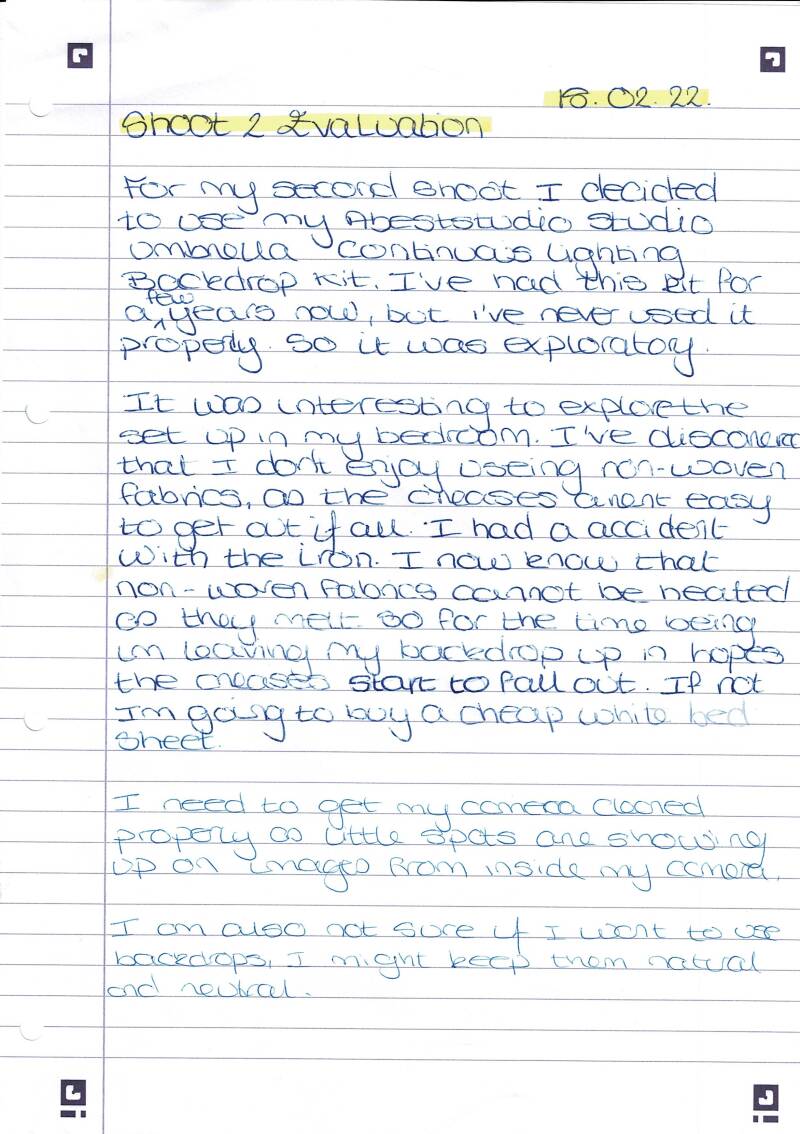 18.02.22.
Shoot 2 Evaluation
For my second shoot I decided
to use my Abeststudio studio
umbrella continuais lighting
Backdrop kit. I've had this kit for
a few years now, but i've never used it
properly. So it was exploratory.
It was interesting to explore the
set up in my bedroom. I've discovered
that I don't enjoy useing non-woven
fabrics, as the creases arent easy
to get out if all. I had a accident
with the iron. I now know that
non-woven fabrics cannot be heated
as they melt. So for the time being
im leaving my backdrop up in hopes
the creases start to fall out. If not
I'm going to buy a cheap white bed
sheet.
I need to get my camera cleaned
properly as little spots are showing
up on images from inside my camera.
I am also not sure if I want to use
backdrops, I might keep them natural
and neutral.